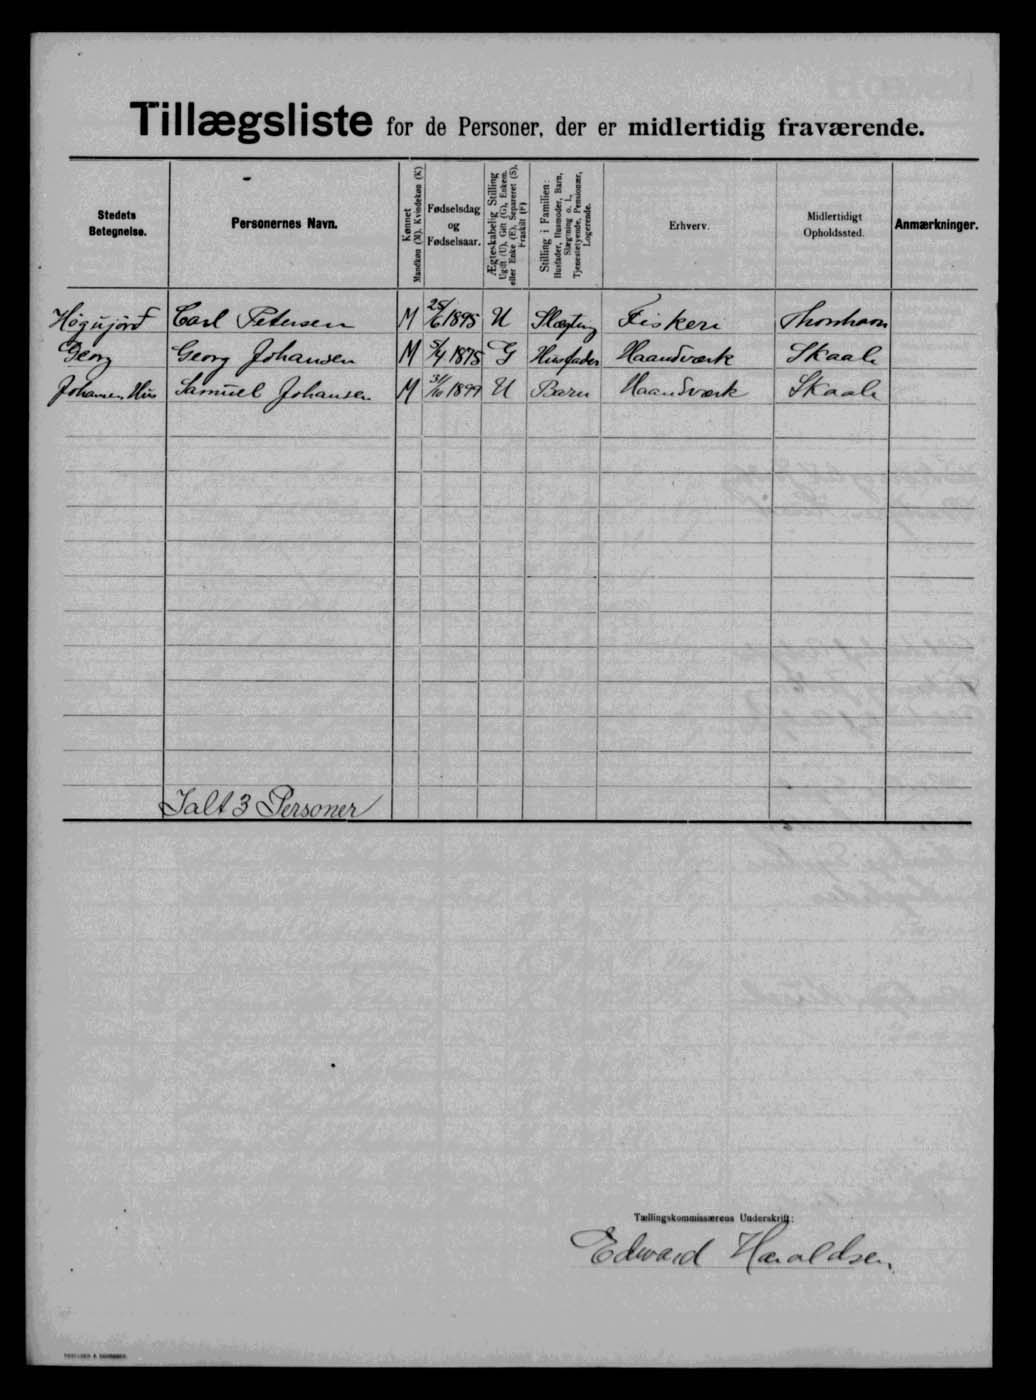 Tillægsliste for de Personer, der er midlertidig fraværende.
Stedets Betegnelse.
Personernes Navn.
Kønnet
Mandkøn (M). Kvindekøn (K)
Fødselsdag
og
Fødselsaar.
Ægteskabelig Stilling
Ugift (U), Gift (G), Enkem.
eller Enke (E), Separeret (S),
Fraskilt (F)
Stilling i Familien:
Husfader, Husmoder, Barn,
Slægtning o. l.,
Tjenestetyende, Pensionær,
Logerende.
Erhverv.
Midlertidigt
Opholdssted.
Anmærkninger.
Høgujörd Carl Petersen M 25/6 1895 U Slægtning Fiskeri Thorshavn
Georg Georg Johansen M 5/4 1875 G Husfader Haandværk Skaale
Johansens Hus Samuel Johansen M 31/10 1899 U Barn Haandværk Skaale
Ialt 3 Personer
Tællingskommissærens Underskrift:
Edward Haraldsen.